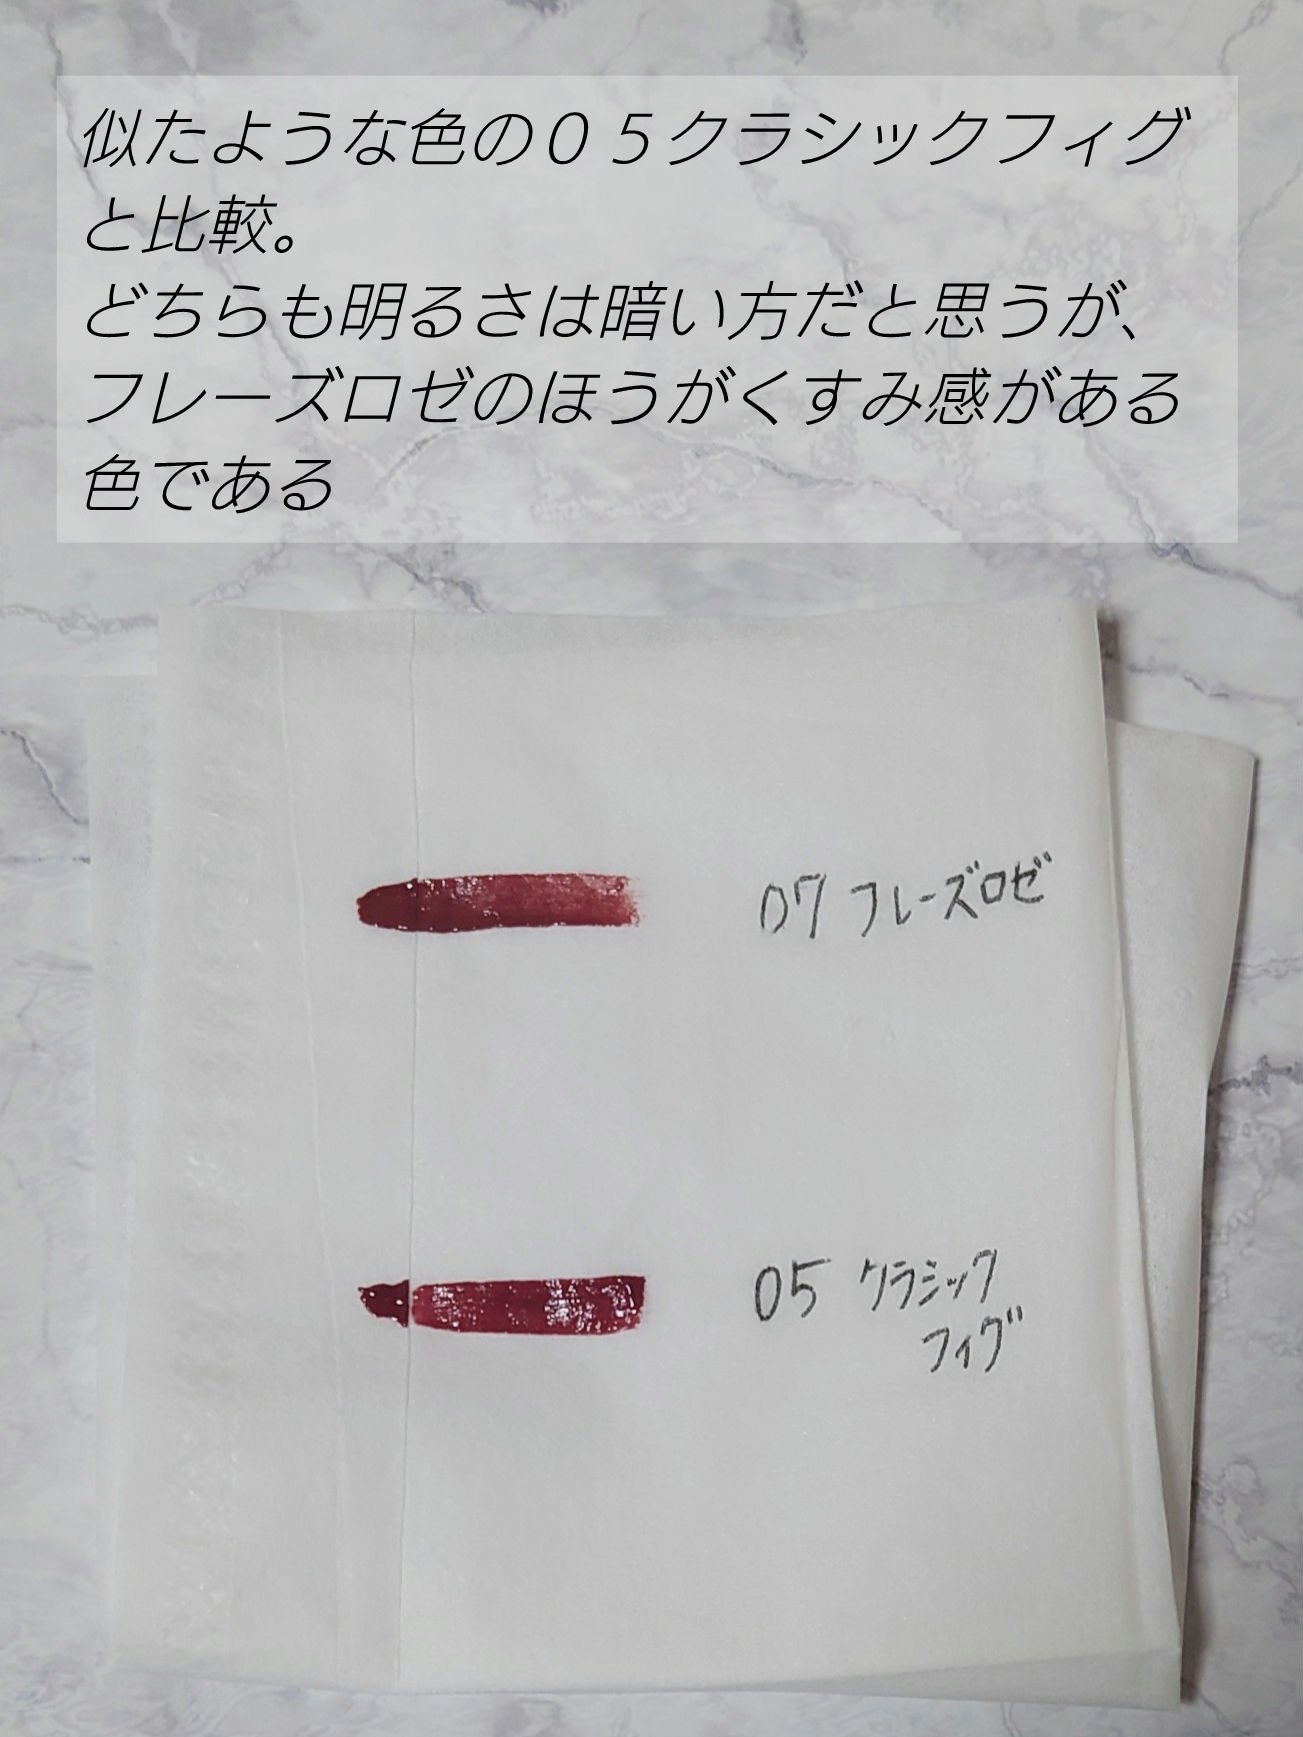 似たような色の０５クラシックフィグ
と比較。
どちらも明るさは暗い方だと思うが、
フレーズロゼのほうがくすみ感がある
色である
07 フレーズロゼ
05 クラシック
フィグ